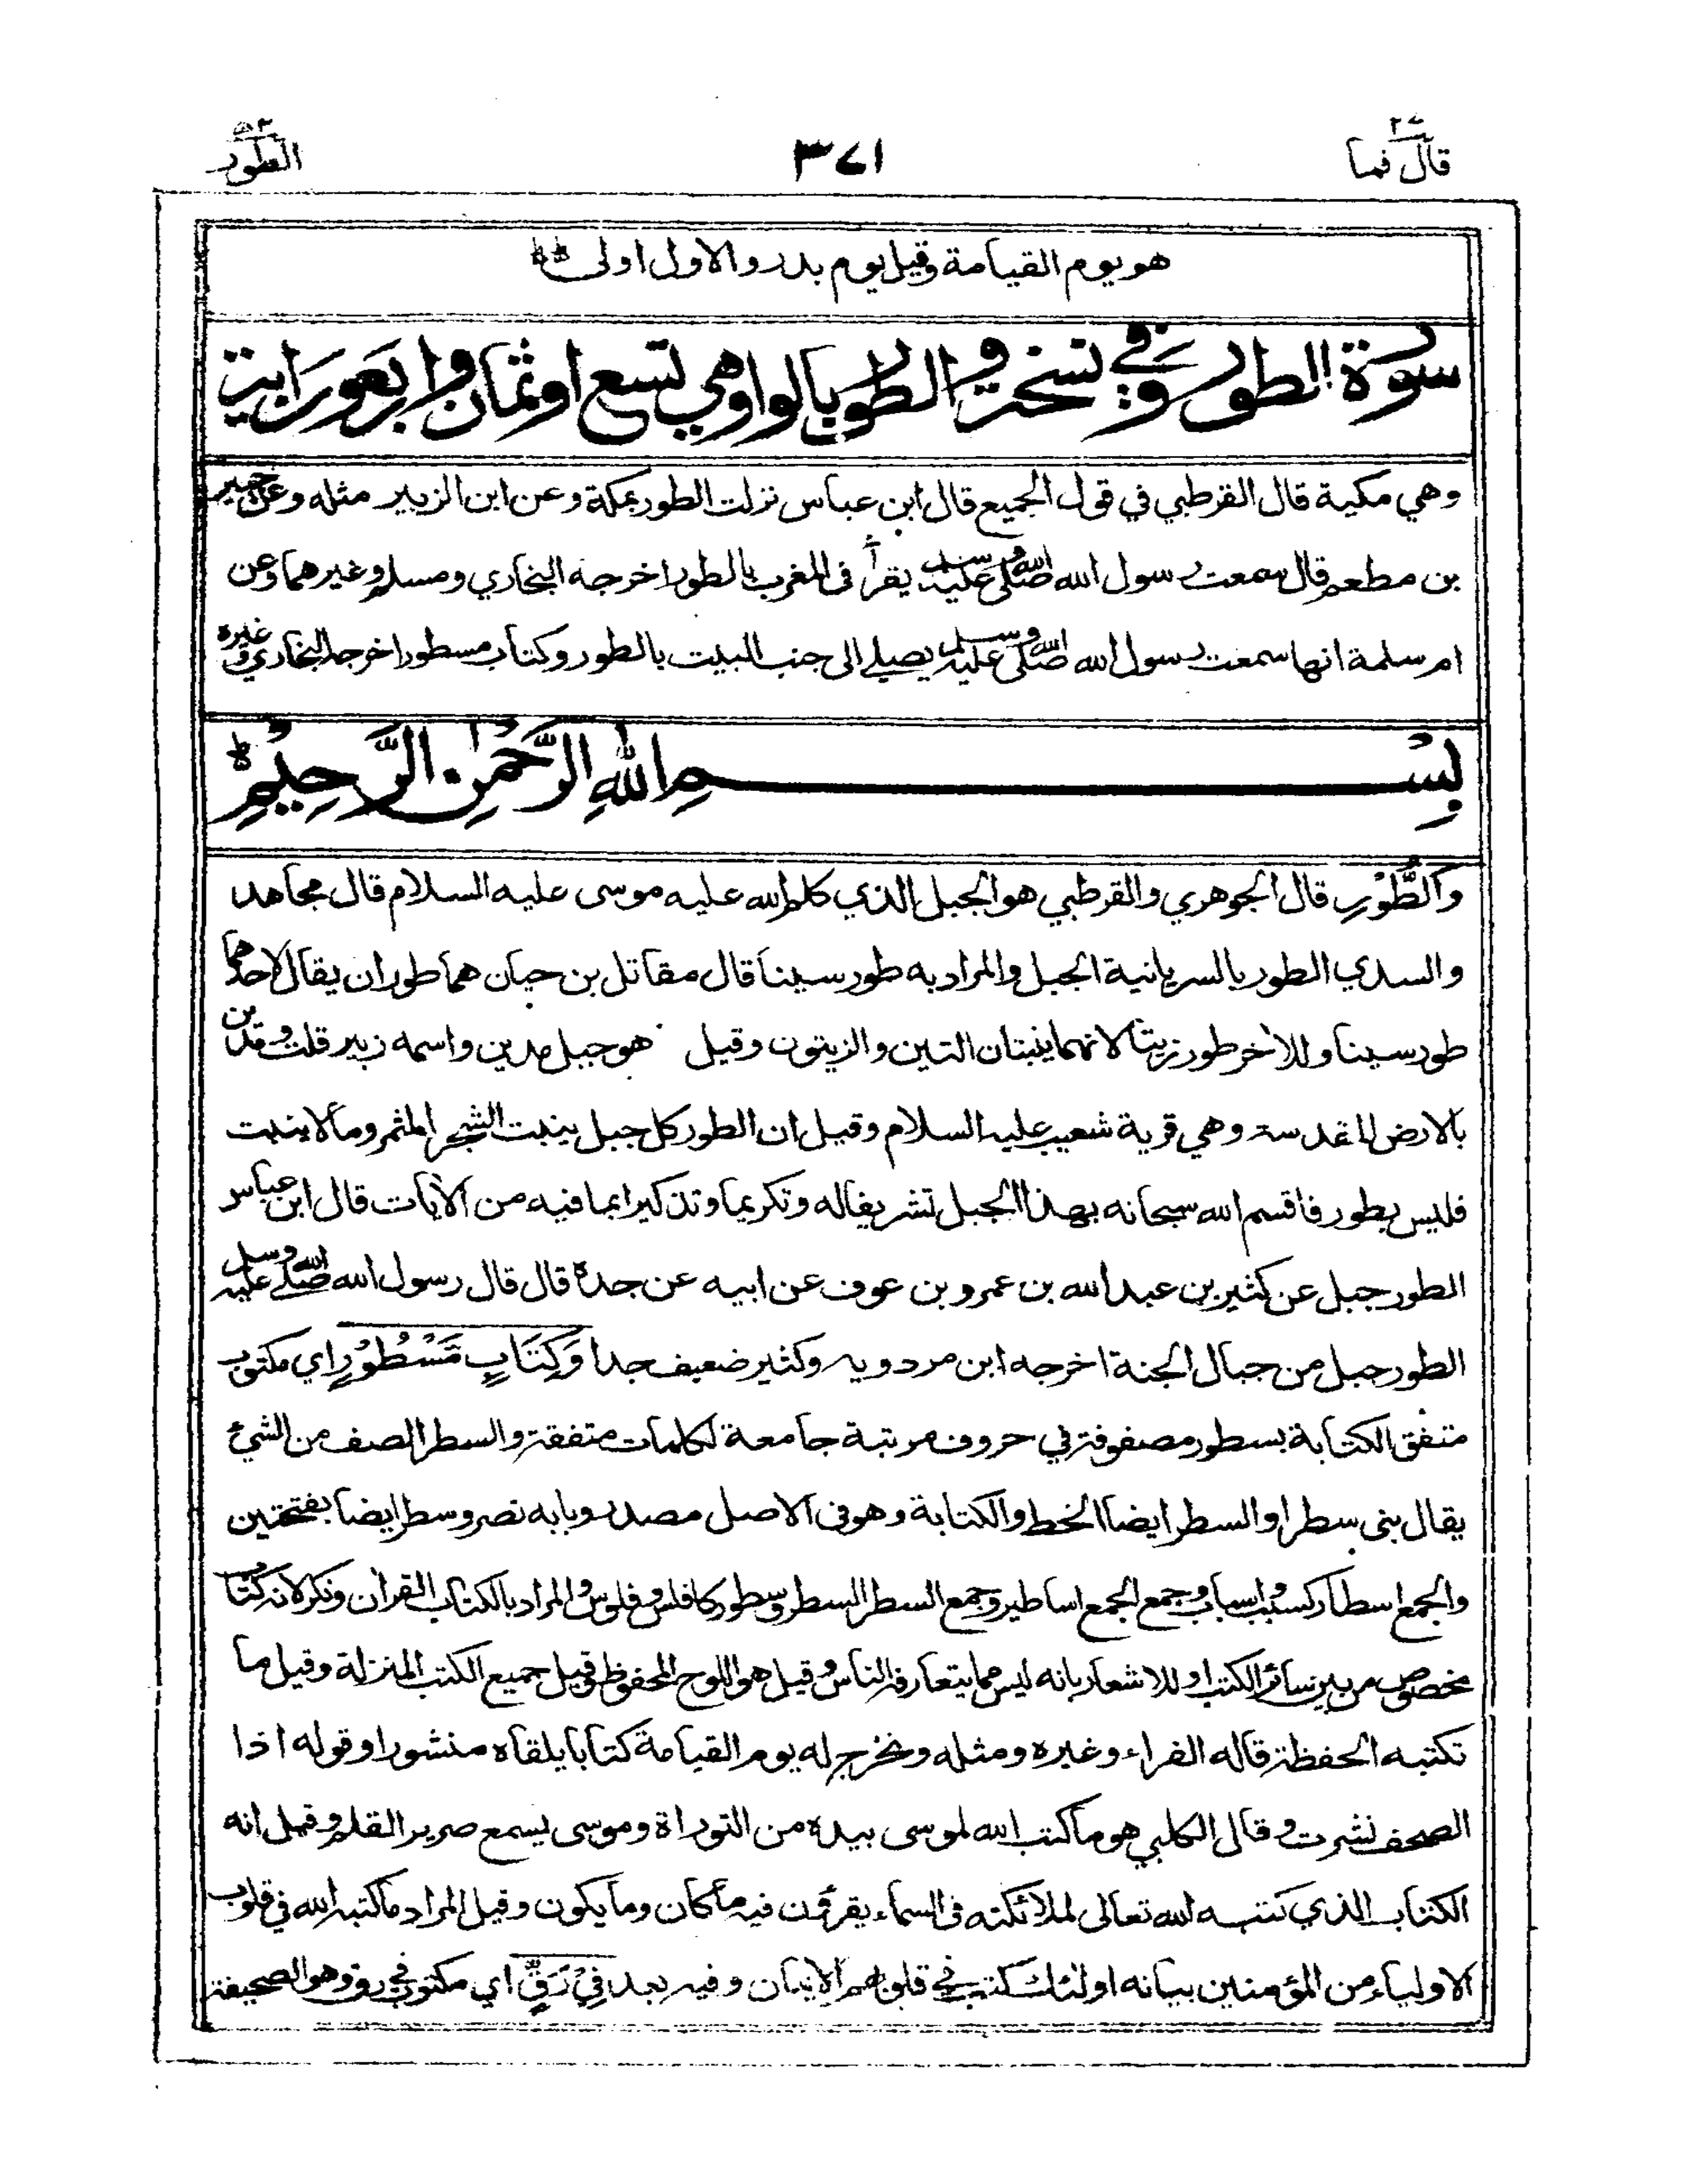 قال فما ٢٧
٣٧١
الطور ٥٢
هو يوم القيامة وقيل يوم بدر والاول اولى
سورة الطور وفي نسخة والطور بالواو وهي تسع او ثمان واربعون اية
وهي مكية قال القرطبي في قول الجميع قال ابن عباس نزلت الطور بمكة وعن ابن الزبير مثله وعن جبير
بن مطعم قال سمعت رسول الله صلى الله عليه وسلم يقرأ فى المغرب بالطور اخرجه البخاري ومسلم وغيرهما وعن
ام سلمة انها سمعت رسول الله صلى الله عليه وسلم يصلي الى جنب البيت بالطور وكتاب مسطور اخرجه البخاري وغيره
بِسْمِ اللهِ الرَّحْمٰنِ الرَّحِيْمِ
وَالطُّوْرِ قال الجوهري والقرطبي هو الجبل الذي كلم الله عليه موسى عليه السلام قال مجاهد
والسدي الطور بالسريانية الجبل والمراد به طور سينا قال مقاتل بن حبان هما طوران يقال لاحدهما
طور سينا وللاخر طور زيتا لانهما ينبتان التين والزيتون وقيل هو جبل مدين واسمه زبير قلت ومدين
بالارض المقدسة وهي قرية شعيب عليه السلام وقيل ان الطور كل جبل ينبت الشجر المثمر وما لا ينبت
فليس بطور فاقسم الله سبحانه بهذا الجبل تشريفا له وتكريما وتذكيرا بما فيه من الأيات قال ابن عباس
الطور جبل عن كثير بن عبد الله بن عمرو بن عوف عن ابيه عن جده قال قال رسول الله صلى الله عليه وسلم
الطور جبل من جبال الجنة اخرجه ابن مردويه وكثير ضعيف جدا وَكِتَابٍ مَّسْطُوْرٍ اي مكتوب
متفق الكتابة بسطور مصفوفة في حروف مرتبة جامعة لكلمات متفقة والسطر الصف من الشئ
يقال بنى سطرا والسطر ايضا الخط والكتابة وهو فى الاصل مصدر وبابه نصر وسطر ايضا بفتحتين
والجمع اسطار كسبب واسباب وجمع الجمع اساطير وجمع السطر اسطر وسطور كافلس وفلوس والمراد بالكتاب القران ونكر لانه كتاب
مخصوص من بين سائر الكتب او للاشعار بانه ليس مما يتعارفه الناس وقيل هو اللوح المحفوظ وقيل جميع الكتب المنزلة وقيل ما
تكتبه الحفظة قاله الفراء وغيره ومثله ونخرج له يوم القيامة كتابا يلقاه منشورا وقوله اذا
الصحف نشرت وقال الكلبي هو ما كتب الله لموسى بيده من التوراة وموسى يسمع صرير القلم وقيل انه
الكتاب الذي كتبه الله تعالى لملائكته فى السماء يقرؤن فيه ما كان وما يكون وقيل المراد ما كتبه الله في قلوب
الاولياء من المؤمنين بيانه اولئك كتب في قلوبهم الايمان وفيه بعد فِيْ رَقٍّ اي مكتوب في رق وهو الصحيفة